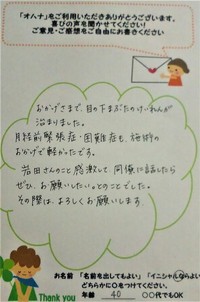 「オハナ」をご利用いただきありがとうございます。
喜びの声を聞かせてください!
ご意見・ご感想をご自由にお書きください
おかげさまで、目の下まぶたのけいれんが
治まりました。
月経前緊張症・困難症も、施術の
おかげで軽かったです。
岩田さんのこと感激して、同僚に話したら
ぜひ、お願いしたいとのことでした。
その際は、よろしくお願いします。
お名前 「名前を出してもよい」「イニシャルならよい」
どちらかに○をつけてください。
Thank you
年齢 40 ○○代でもOK